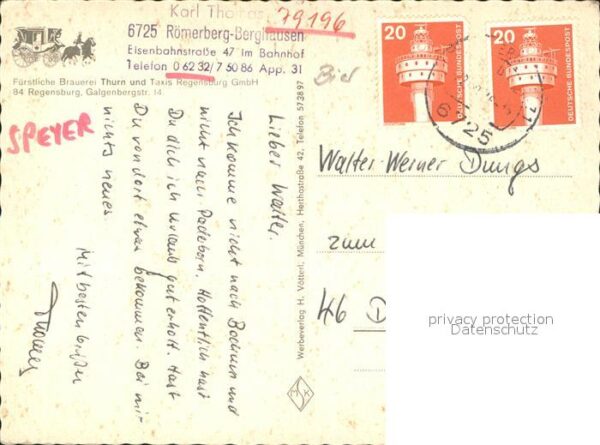 Karl Thomas
79196
6725 Römerberg-Berghausen
Eisenbahnstraße 47 im Bahnhof
Telefon 0 62 32/7 50 86 App. 31
Fürstliche Brauerei Thurn und Taxis Regensburg GmbH
84 Regensburg, Galgenbergstr. 14
SPEYER
Bier
Lieber Walter.
Ich komme nicht nach Bochum und
nicht nach Padeborn. Hoffentlich hast
Du dich im Urlaub gut erholt. Hast
Du von dort etwas bekommen. Bei mir
nichts neues.
Mit besten Grüßen
Thomas
Werbeverlag H. Vötterl, München, Herthastraße 42, Telefon 573897
20
DEUTSCHE BUNDESPOST
20
DEUTSCHE BUNDESPOST
6725
Walter-Werner Dungs
zum
46 D
privacy protection
Datenschutz